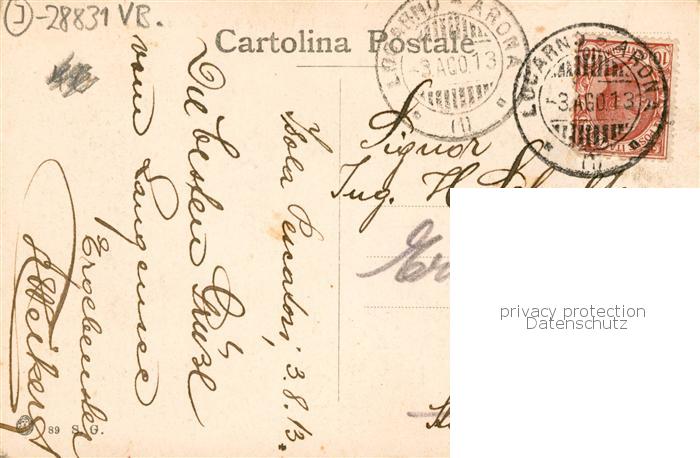 J-28831 VB.
Cartolina Postale
LOCARNO - ARONA
-3 AGO.13
(1)
LOCARNO - ARONA
-3 AGO.13
(1)
10 10
Signor
Ing. H.
Isola Pescatori, 3.8.13.
Die besten Grüße
vom Langensee
89 S. G.
privacy protection
Datenschutz